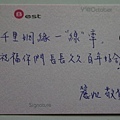 East
千里姻緣一"線"牽.
祝福你們 長長久久 百年好合
Signature